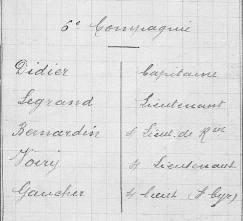 6e Compagnie
Didier Capitaine
Legrand Lieutenant
Bernardin s/ Lieut. de Rve
Voirij s/ Lieutenant
Gaucher s/ Lieut (St Cyr)